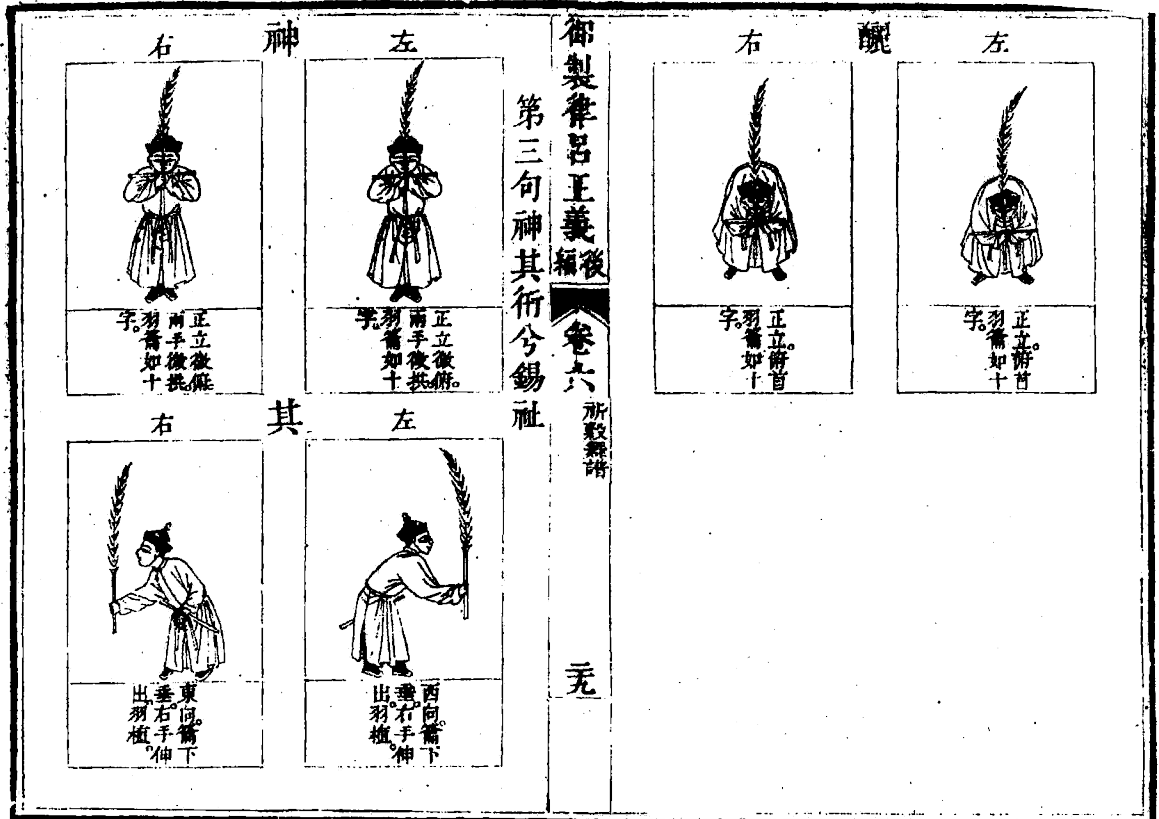 左
右
正立。俯首
羽籥如十
字。
正立。俯首
羽籥如十
字。
御製律呂正義後編
卷六
祈穀舞譜
第三句神其衎兮錫祉
左
神
右
正立微俯。
兩手微拱。
羽籥如十
字。
正立微俯。
兩手微拱。
羽籥如十
字。
左
其
右
西向。籥下
垂。右手伸
出。羽植。
東向。籥下
垂。右手伸
出。羽植。